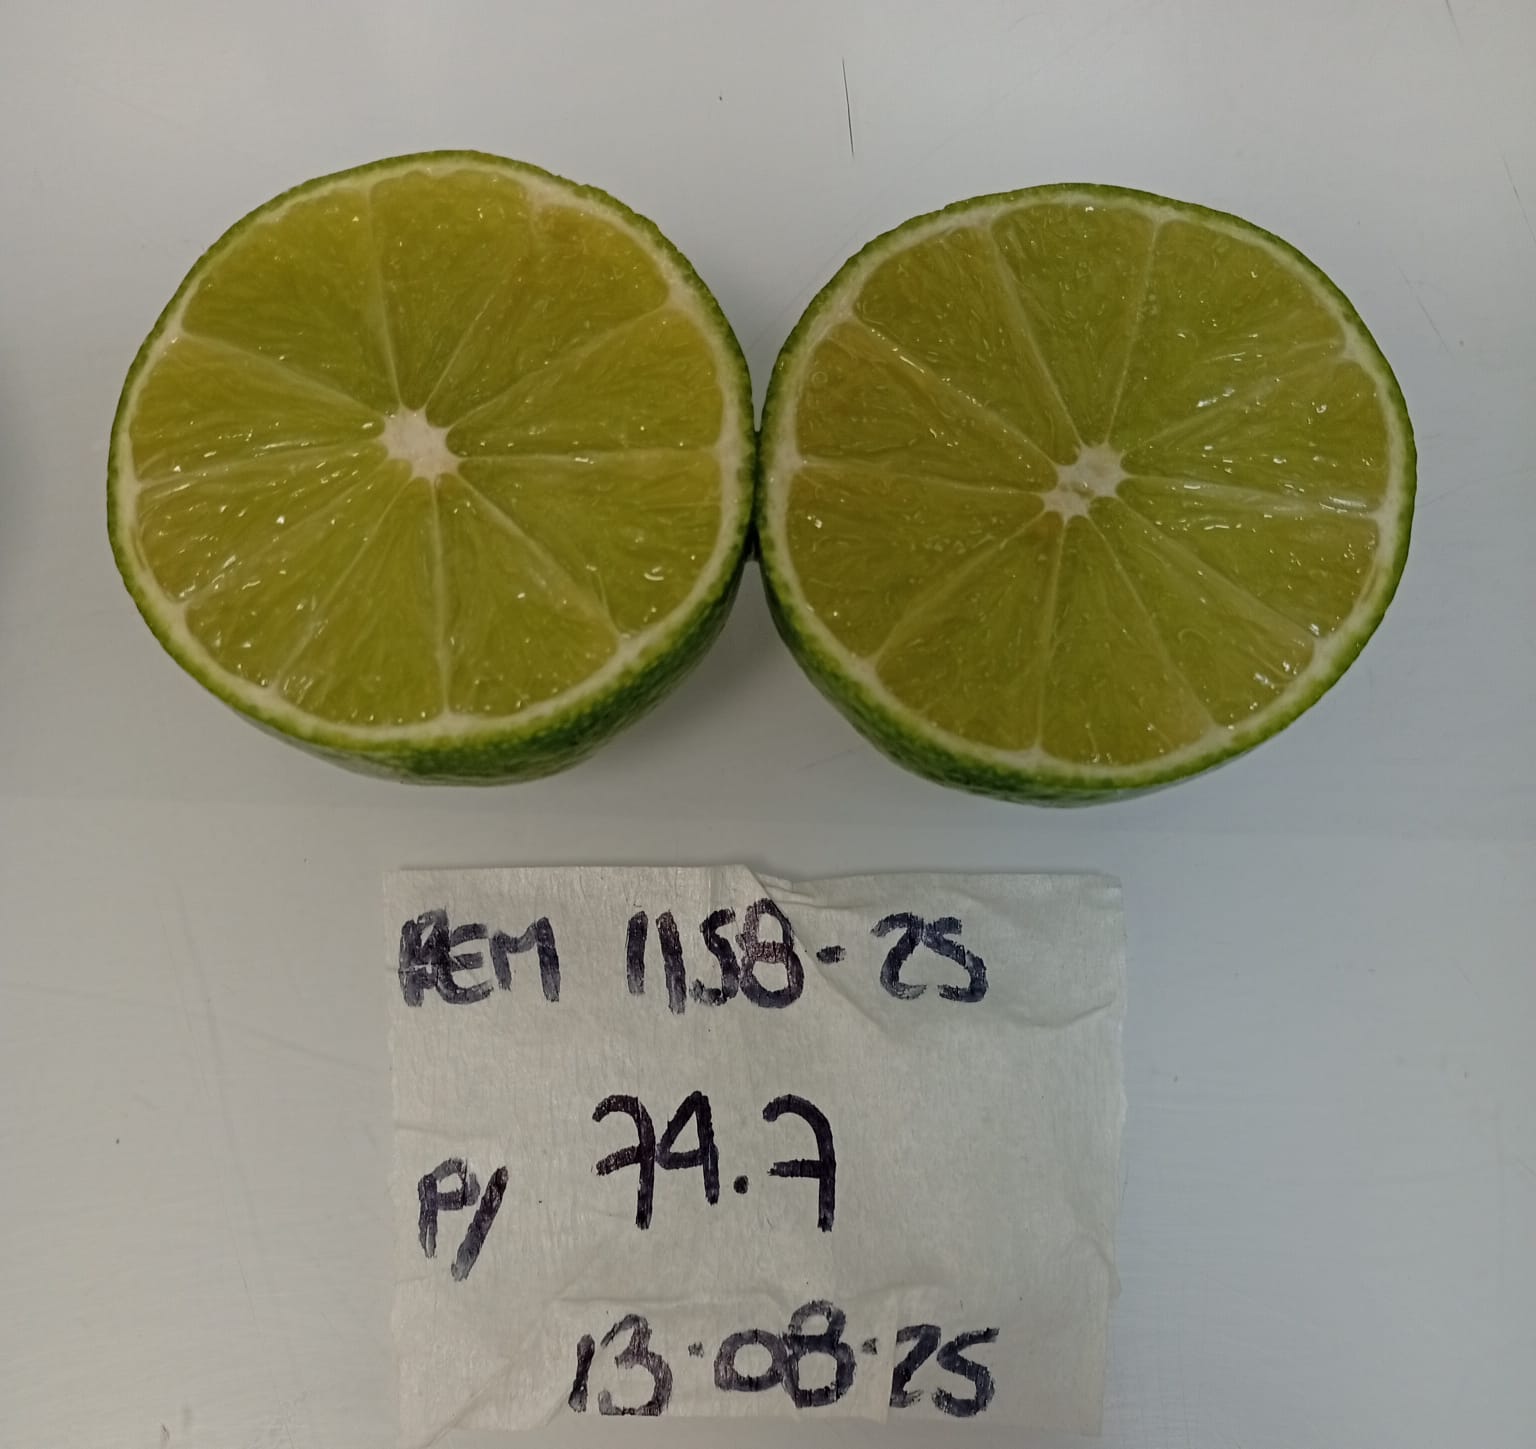 REM 1158-25
P/ 74.7
13-08-25